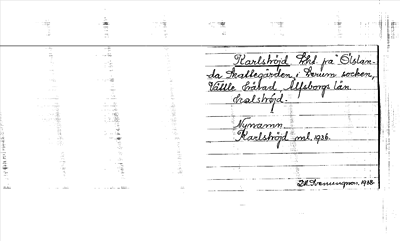 Karlshöjd Lht. på Ölstan-
da Skattegården, i Lerum socken,
Vättle härad, Älfsborgs län.
Kalshöjd.
Nynamn.
Karlshöjd ml. 1936.
1938